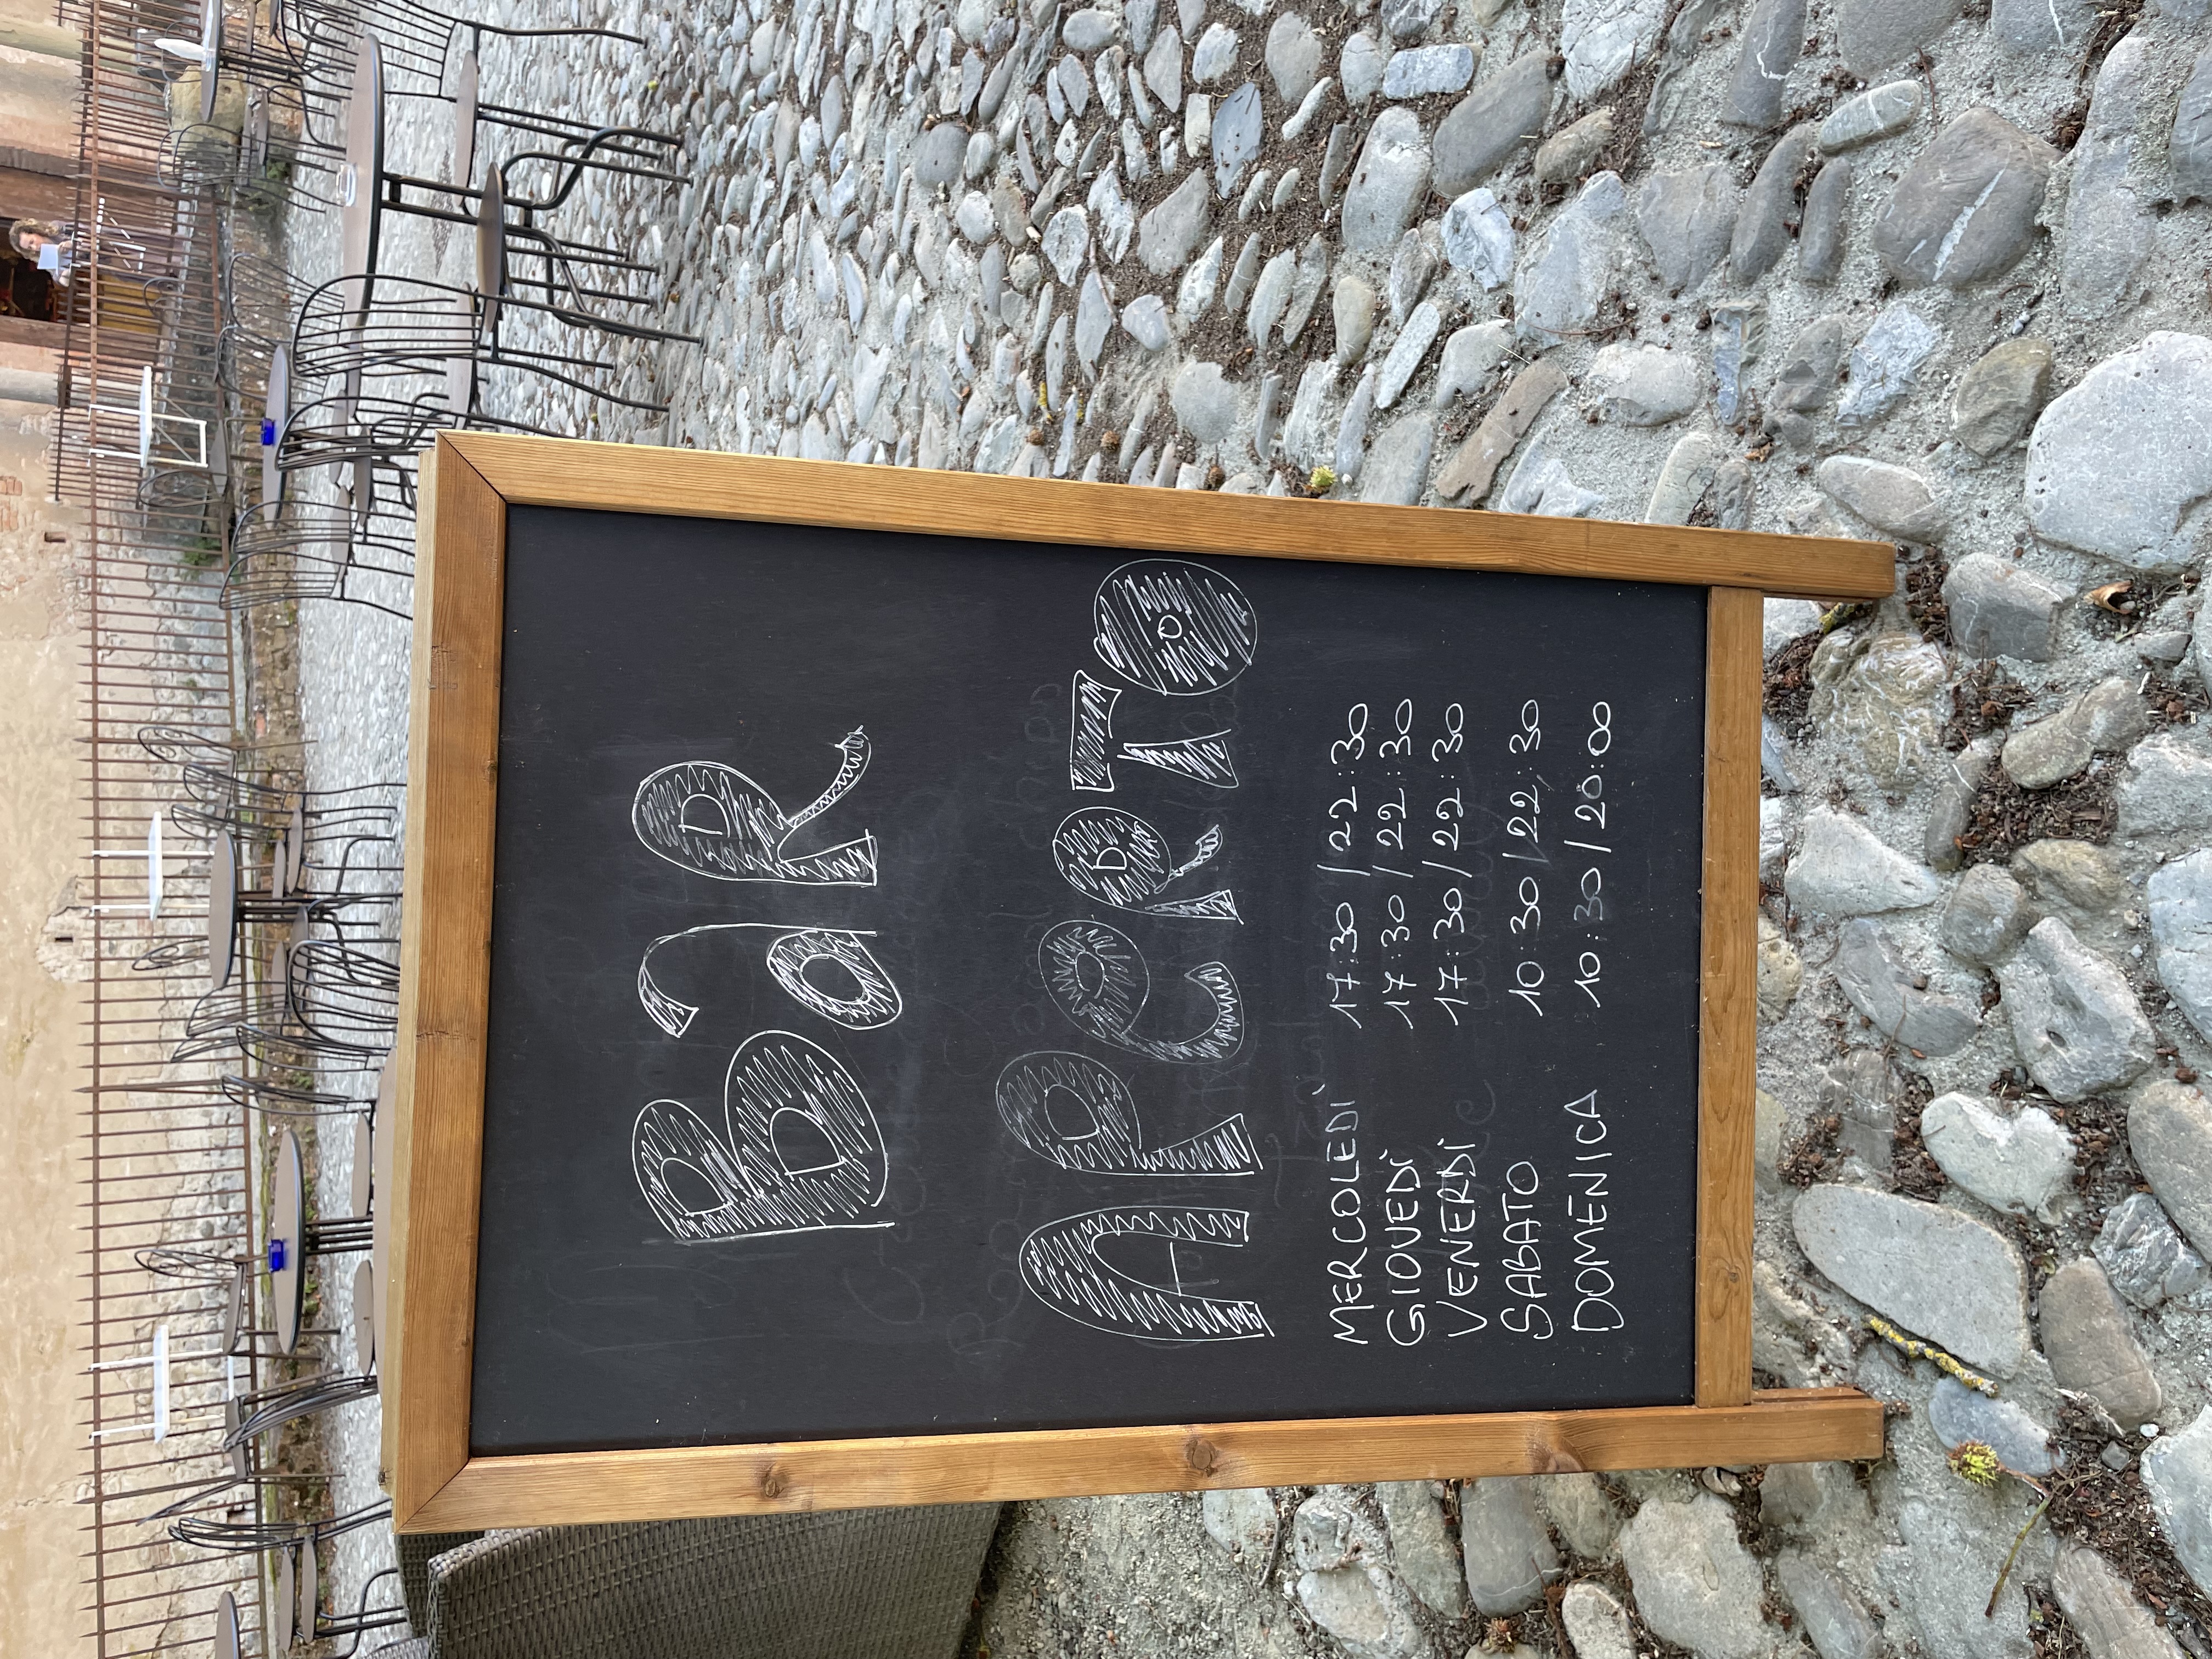 BaR
APeRTO
MERCOLEDÌ 17:30 / 22:30
GIOVEDÌ 17:30 / 22:30
VENERDÌ 17:30 / 22:30
SABATO 10:30 / 22:30
DOMENICA 10:30 / 20:00